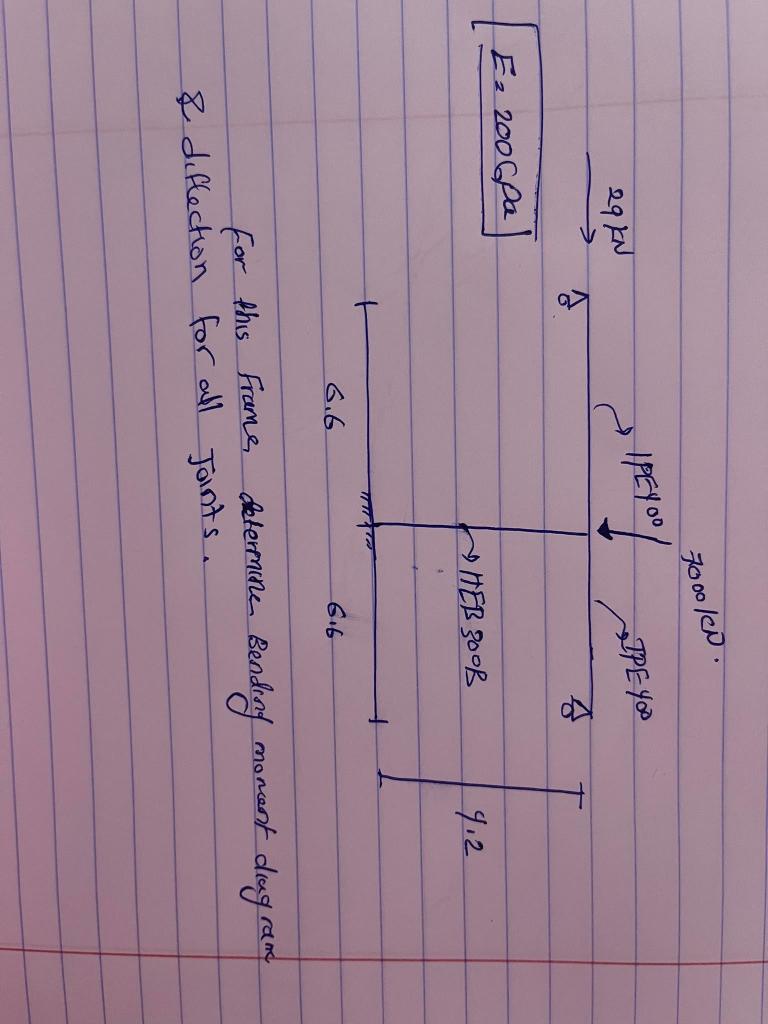 E= 200Gpa
29 kN
IPE400
7000 kN.
IPE400
HEB 300B
4.2
6.6
6.6
For this frame, determine Bending moment diagram
& diflection for all Joints.